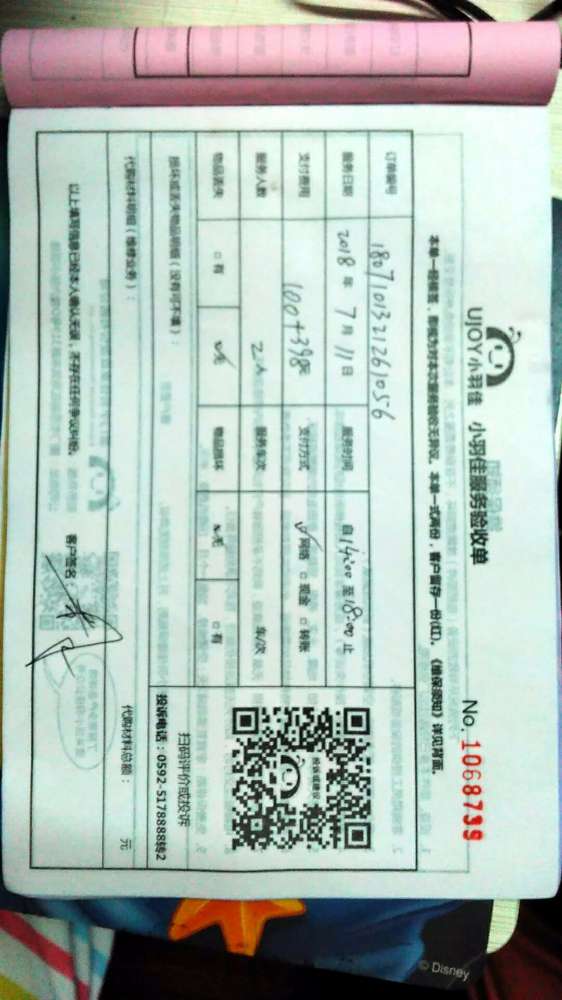 UJOY小羽佳 小羽佳服务验收单
No. 1068739
本单一经签签，即视为对本次服务验收无异议。本单一式两份，客户留存一份(红)。《维保须知》详见背面。
订单编号 180710132126 1056
服务日期 2018 年 7 月 11 日 服务时间 自 14:00 至 18:00 止
支付费用 100+398元 支付方式 ☑网络 □现金 □转账
服务人数 2 人 服务车次 车/次
物品丢失 □有 ☑无 物品损坏 ☑无 □有
投诉或建议
扫码评价或投诉
投诉电话：0592-5178888转2
损坏或丢失物品明细（没有可不填）：
代购材料明细（维修业务）： 代购材料总额： 元
以上填写信息已经本人确认无误，不存在任何争议纠纷。 客户签名：
© Disney